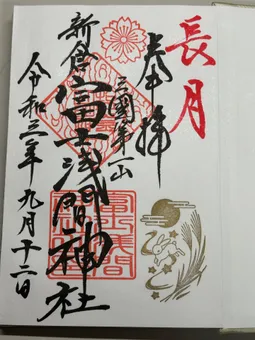 長月
奉拝
三國第一山
新倉富士浅間神社
令和三年九月十二日
冨士浅間